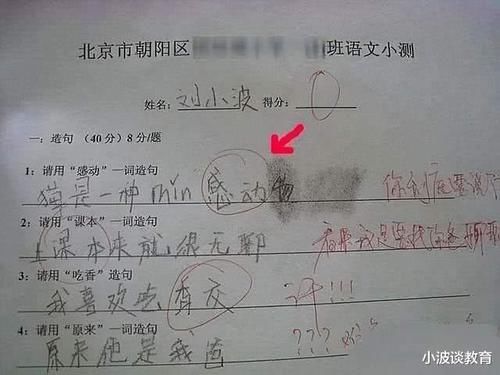 北京市朝阳区 班语文小测
姓名：刘小波 得分：0
一：造句（40分）8分/题
1：请用“感动”一词造句
猫是一种min感动物
2：请用“课本”一词造句
上课本来就很无聊
看来我是要找你爸聊
3：请用“吃香”一词造句
我喜欢吃香交
汗!!!
4：请用“原来”一词造句
原来他是我爸
???
小波谈教育